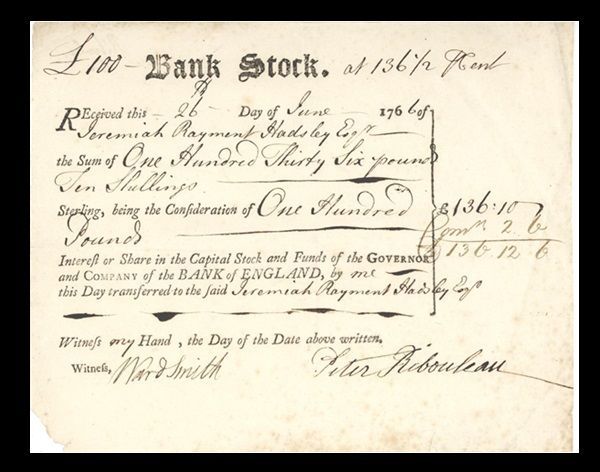 £100 - Bank Stock. at 136 1/2 ℔ Cent
REceived this 26th Day of June 1766 of
Jeremiah Rayment Hadsley Esqr.
the Sum of One Hundred Thirty Six pounds
Ten Shillings
Sterling, being the Consideration of One Hundred £ 136: 10
Pounds 2. 6
Intereſt or Share in the Capital Stock and Funds of the GOVERNOR 136. 12 6
and COMPANY of the BANK of ENGLAND, by me
this Day transferred to the ſaid Jeremiah Rayment Hadsley Esqr
Witneſs my Hand, the Day of the Date above written.
Witneſs, Ward Smith Peter Ribouleau